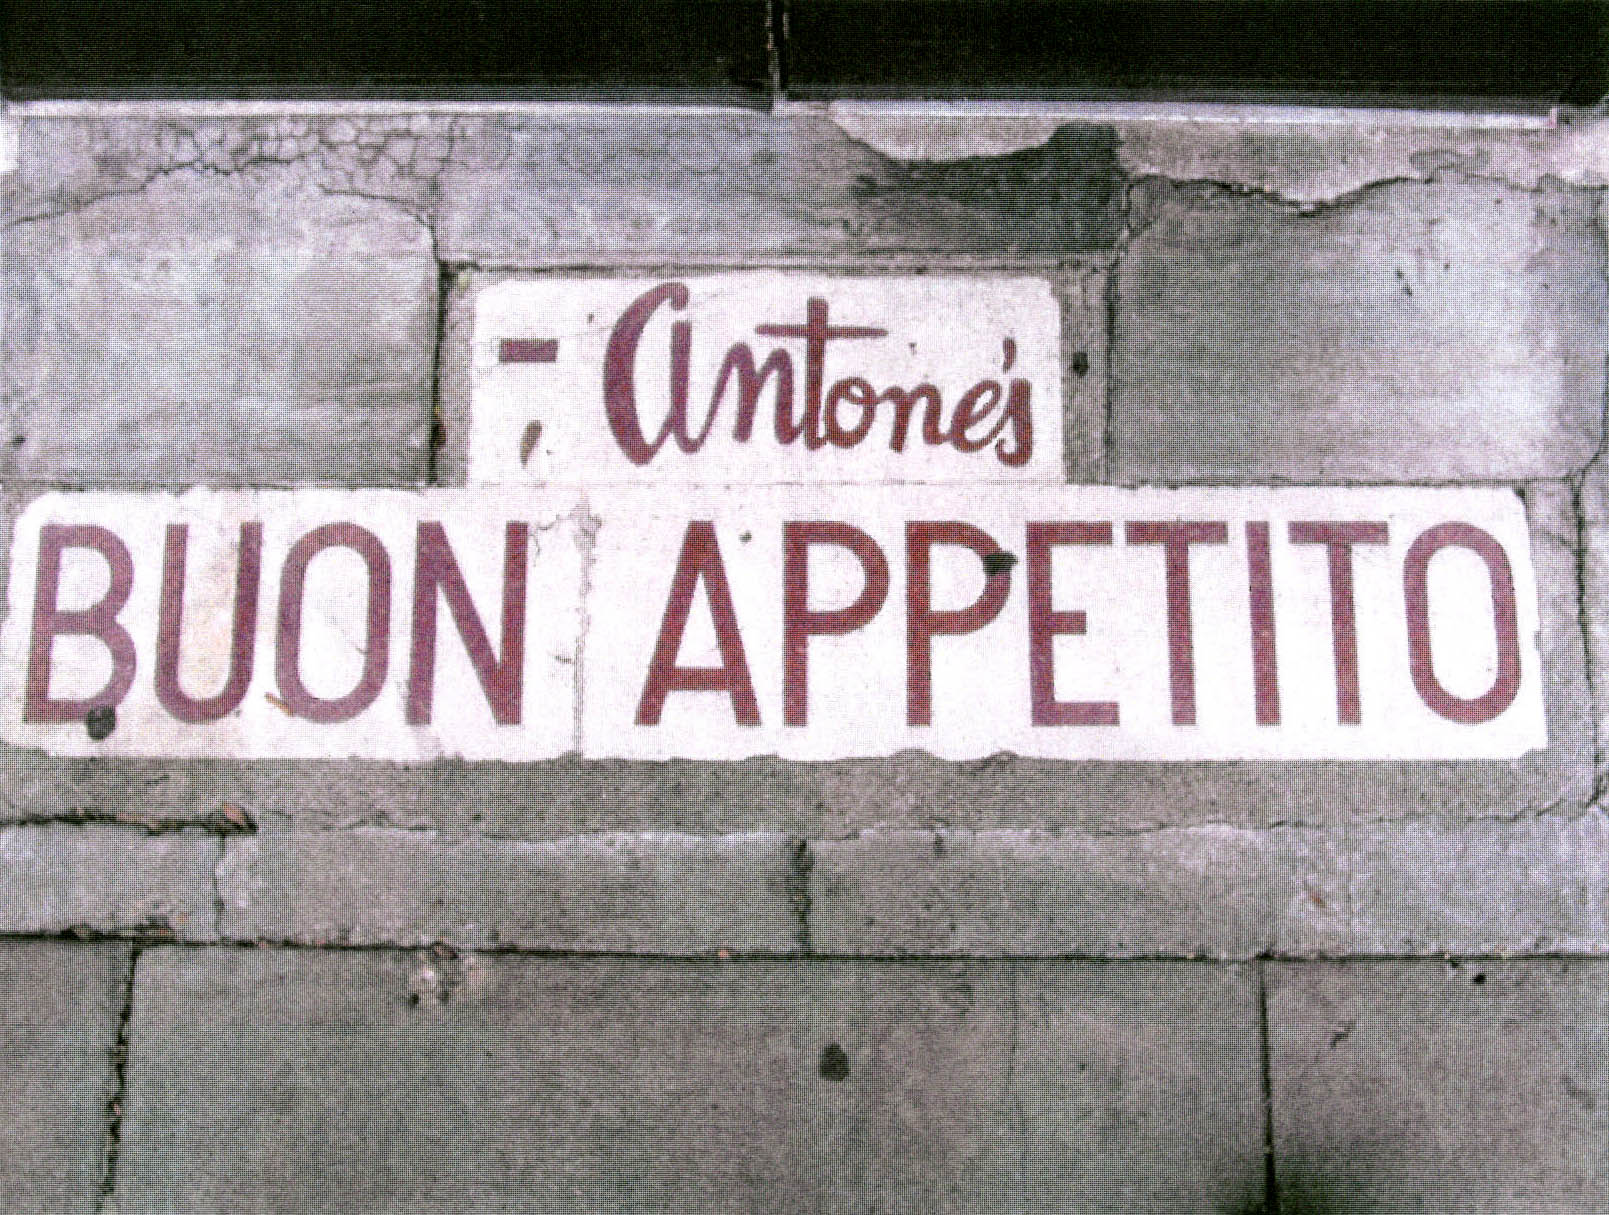 - Antone's
BUON APPETITO